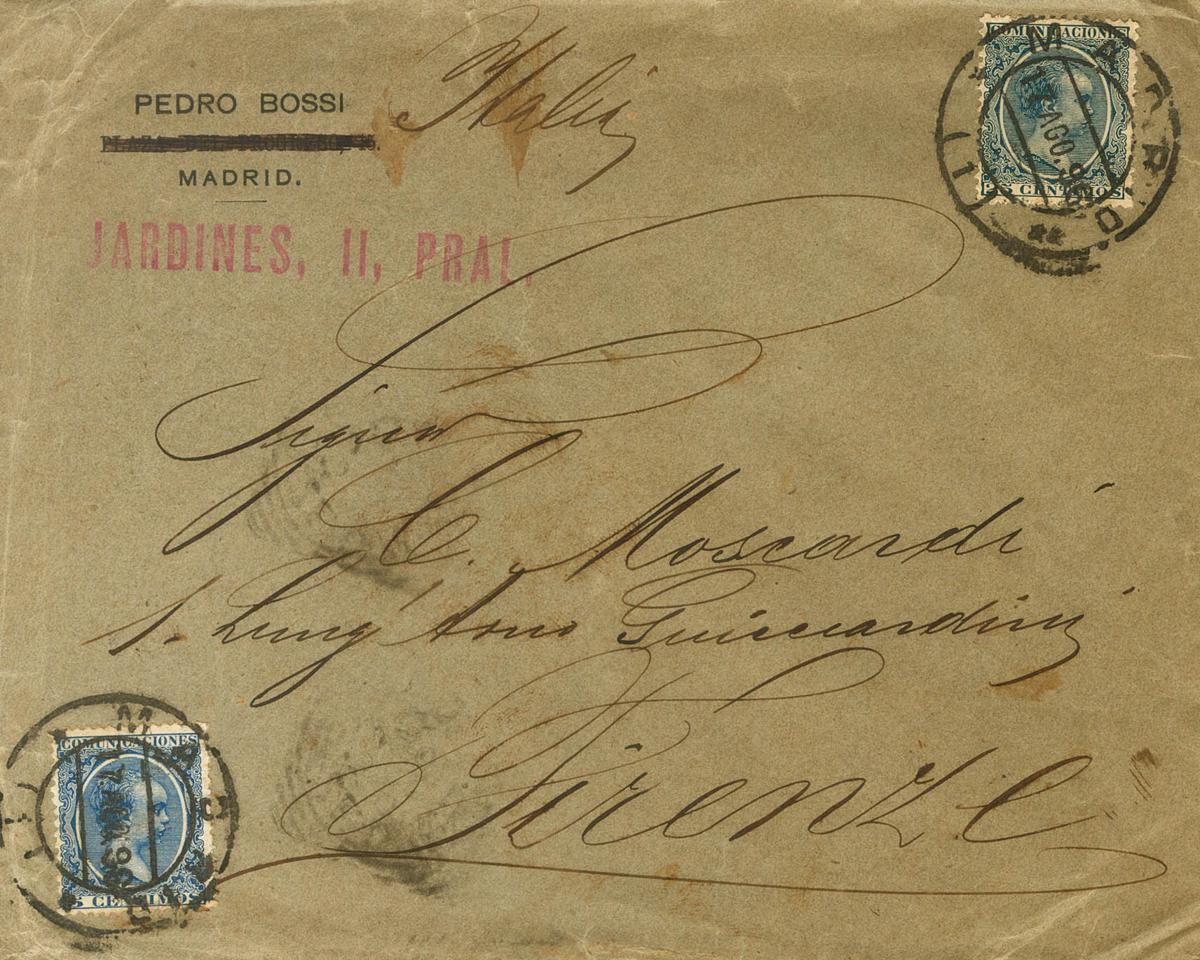 Italia
PEDRO BOSSI
PLAZA DEL PROGRESO,
MADRID.
JARDINES, 11, PRAL.
COMUNICACIONES
25 CENTIMOS
MADRID
AGO. 96
(1)
Signor
C. Moscardi
1. Lung'Arno Guicciardini
Firenze
COMUNICACIONES
25 CENTIMOS
MADRID